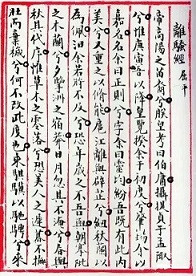 離騷經 屈平
帝高陽之苗裔兮朕皇考曰伯庸攝提貞于孟陬
兮惟庚寅吾以降皇覽揆余于初度兮肇錫余以
嘉名名余曰正則兮字余曰靈均紛吾既有此內
美兮又重之以脩能扈江離與辟芷兮紉秋蘭以
為佩汩余若將不及兮恐年歲之不吾與朝搴阰
之木蘭兮夕攬洲之宿莽日月忽其不淹兮春與
秋其代序惟草木之零落兮恐美人之遲暮不撫
壯而棄穢兮何不改此度也乘騏驥以馳騁兮來